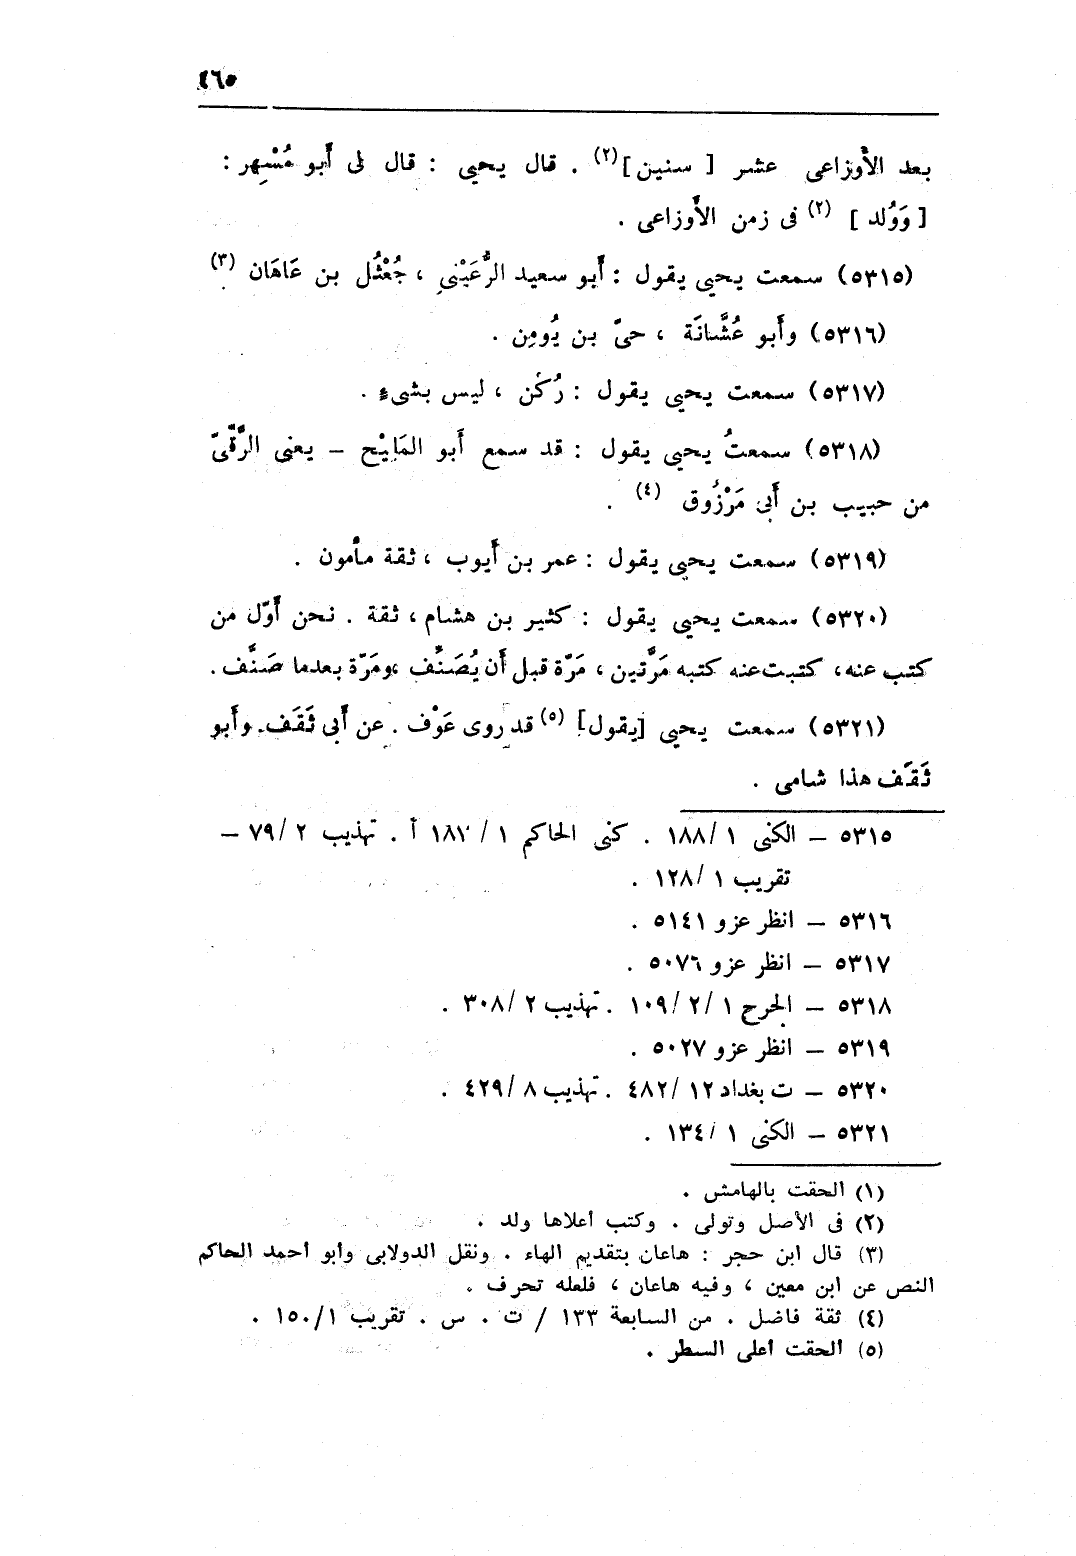 ٤٦٥
بعد الأَوزاعى عشر [ سنين ](٢) . قال يحيى : قال لى أَبو مُسْهِر :
[ وَوُلد ] (٢) فى زمن الأَوزاعى .
(٥٣١٥) سمعت يحيى يقول : أَبو سعيد الرُّعَيْنى ، جُعْثُل بن عَاهَان (٣)
(٥٣١٦) وأَبو عُشَّانَة ، حىّ بن يُومِن .
(٥٣١٧) سمعت يحيى يقول : رُكْن ، ليس بشىء .
(٥٣١٨) سمعتُ يحيى يقول : قد سمع أَبو المَلِيْح – يعنى الرَّقِّىّ
من حبيب بن أَبى مَرْزُوق (٤) .
(٥٣١٩) سمعت يحيى يقول : عمر بن أَيوب ، ثقة مأْمون .
(٥٣٢٠) سمعت يحيى يقول : كثير بن هشام ، ثقة . نحن أَوّل من
كتب عنه، كتبت عنه كتبه مَرَّتين ، مَرّة قبل أَن يُصَنِّف ،ومَرّة بعدما صَنَّف .
(٥٣٢١) سمعت يحيى [يقول] (٥) قد روى عَوْف . عن أَبى ثَقَف. وأَبو
ثَقَف هذا شامى .
٥٣١٥ – الكنى ١ /١٨٨ . كنى الحاكم ١ / ١٨٧ أ . تهذيب ٢ /٧٩ –
تقريب ١ /١٢٨ .
٥٣١٦ – انظر عزو ٥١٤١ .
٥٣١٧ – انظر عزو ٥٠٧٦ .
٥٣١٨ – الجرح ١ /٢ /١٠٩ . تهذيب ٢ /٣٠٨ .
٥٣١٩ – انظر عزو ٥٠٢٧ .
٥٣٢٠ – ت بغداد ١٢ /٤٨٢ . تهذيب ٨ /٤٢٩ .
٥٣٢١ – الكنى ١ /١٣٤ .
(١) الحقت بالهامش .
(٢) فى الأصل وتولى . وكتب أعلاها ولد .
(٣) قال ابن حجر : هاعان بتقديم الهاء . ونقل الدولابى وأبو أحمد الحاكم
النص عن ابن معين ، وفيه هاعان ، فلعله تحرف .
(٤) ثقة فاضل . من السابعة ١٣٣ / ت . س . تقريب ١ /١٥٠ .
(٥) ألحقت أعلى السطر .